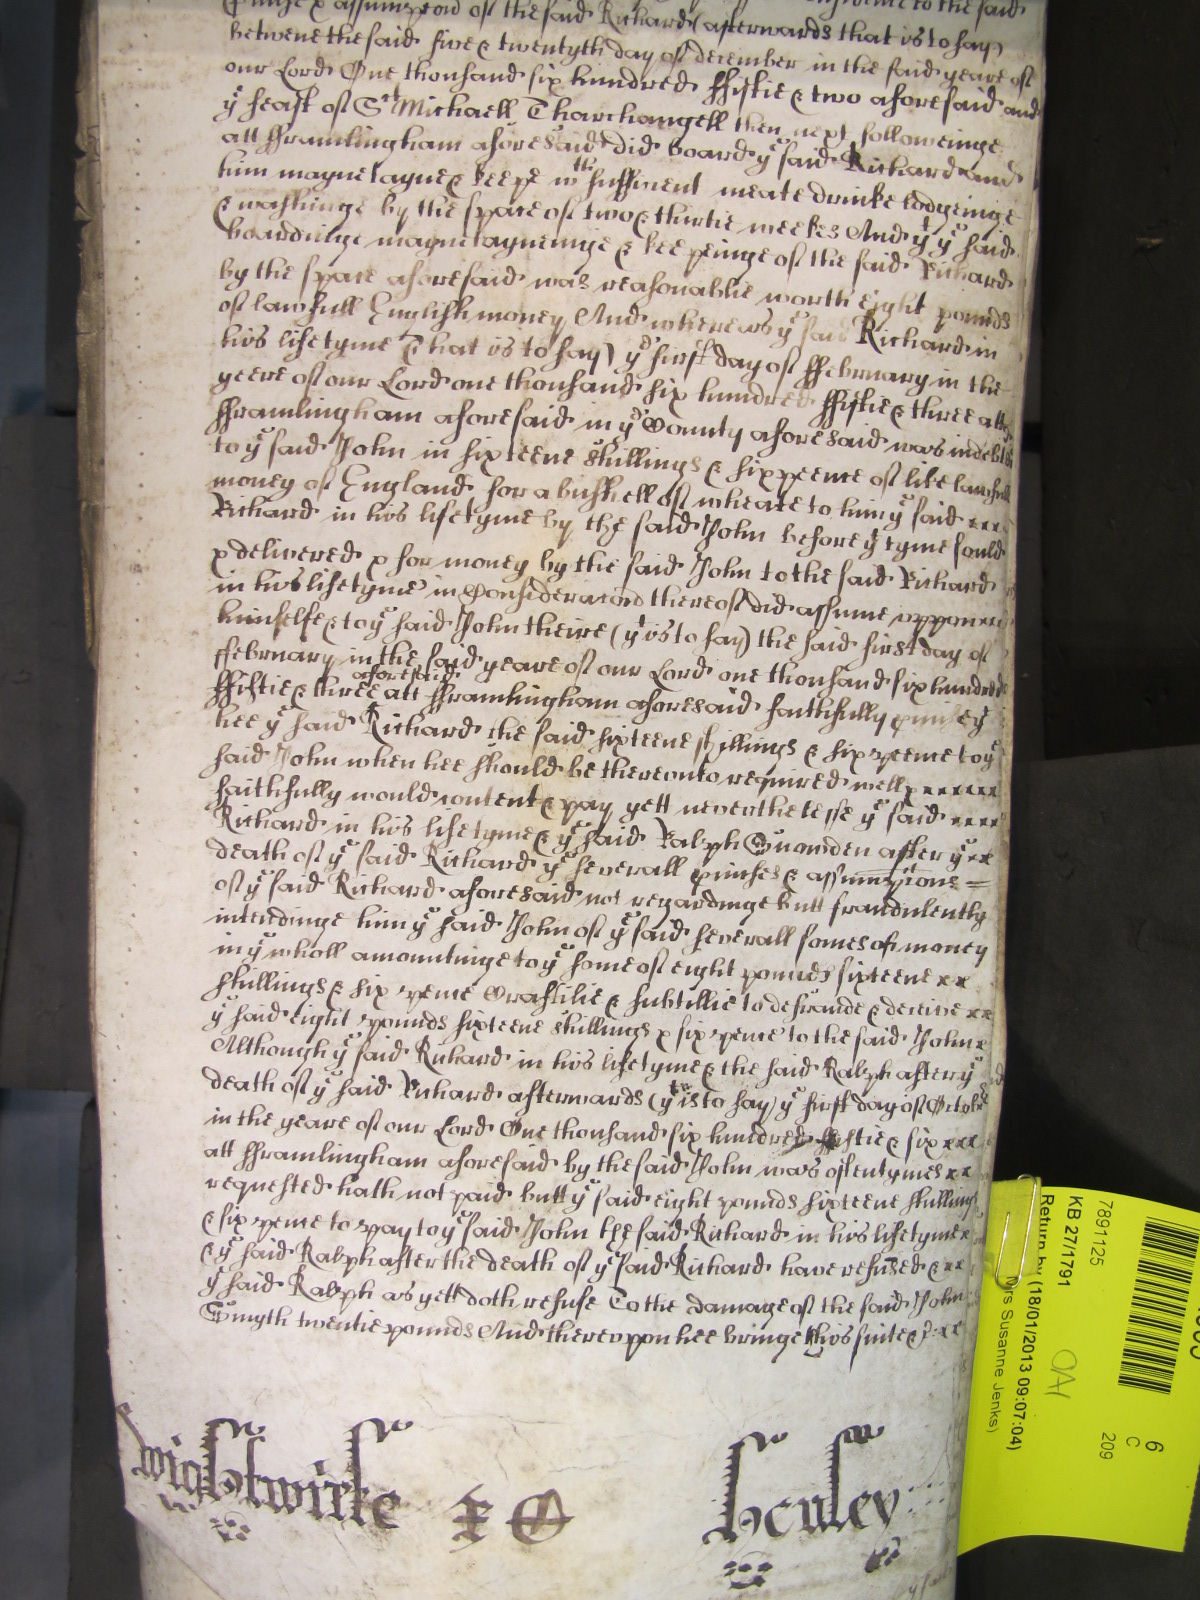 p̱mise & assumpc̃on of the said Richard (afterwards that is to say)
betwene the said five & twentyth day of december in the said yeare of
our Lord One thousand six hundred ffiftie & two aforesaid and
yͤ feast of Sͭ Michaell Tharchangell then next followeinge
att ffframlingham aforesaid did board yͤ said Richard and
him & keepe wͭͪ sufficient meate drinke lodgeinge
& washinge by the space of two & thirtie weekes And yͭ yͤ said
boardinge & keepeinge of the said Richard
by the space aforesaid was reasonablie worth eight pounds
of lawfull English money And whereas yͤ said Richard in
his lifetyme (That is to say) yͤ first day of ffebruary in the
yeere of our Lord one thousand six hundred ffiftie & three att
ffframlingham aforesaid in yͤ County aforesaid was indebted
to yͤ said John in sixteene shillings & sixpence of like lawfull
money of England for a bushell of wheate to him yͤ said
Richard in his lifetyme by the said John before yͭ tyme sould
& delivered & for money by the said John to the said Richard
in his lifetyme in Consideracion thereof did assume uppon
himselfe & to yͤ said John theire (yͭ is to say) the said first day of
ffebruary in the said yeare of our Lord one thousand six hundred
ffiftie & three aforesaid att ffframlingham aforesaid faithfully p̱mise yͭ
hee yͤ said Richard the said sixteene shillings & sixpence to yͤ
said John when hee should be thereonto required well &
faithfully would content & pay yett neverthelesse yͤ said
Richard in his lifetyme & yͤ said Ralph after yͤ
death of yͤ said Richard yͤ severall p̱mises & assumpc̃ons
of yͤ said Richard aforesaid not regardinge butt fraudulently
intendinge him yͤ said John of yͤ said severall somes of money
in yͤ wholl amountinge to yͤ some of eight pounds sixteene
shillings & six pence Craftilie & subtillie to defraude & deceive
yͤ said eight pounds sixteene shillings & six pence to the said John
Although yͤ said Richard in his lifetyme & the said Ralph after yͤ
death of yͤ said Richard afterwards (yͭ is to say) yͤ first day of October
in the yeare of our Lord One thousand six hundred ffiftie & six
att ffframlingham aforesaid by the said John was oftentymes
requested hath not paid butt yͤ said eight pounds sixteene shillings
& six pence to pay to yͤ said John the said Richard in his lifetyme
& yͤ said Ralph after the death of yͤ said Richard have refused &
yͤ said Ralph as yett doth refuse To the damage of the said John
Smyth twentie pounds And thereuppon hee bringe this suite &c
wightwicke xO henley
7891125
KB 27/1791
Return by (18/01/2013 09:07:04)
Mrs Susanne Jenks)
OA1
6
C
209